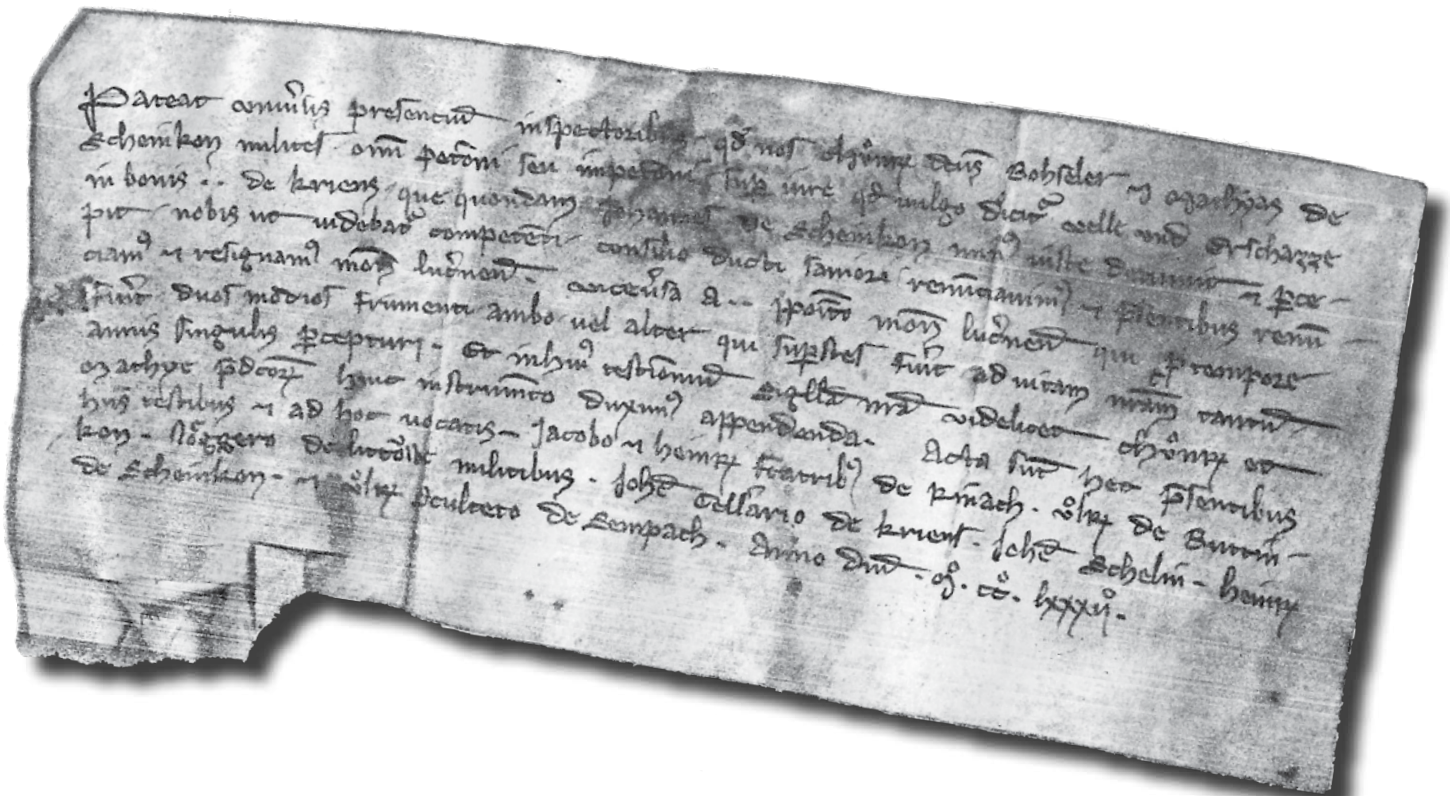 Pateat univ̄sis presenciū inspectoribus · qđ nos Chůnr̄ dc̄us Bohseler ⁊ Mathyas de
Scheinkon milites · om̄i petic̄oni seu impetic̄oni sup̱ iure qđ vulgo dicitꝰ velle und Erschazze
in bonis . . de Kriens · que quondam Johannes de Scheinkon iuste ⁊ p̄ce-
pit · nobis ut videbatꝰ competenti · consilio ducti saniori renūciavimꝰ ⁊ p̄sentibus renū-
ciamꝰ ⁊ resignamꝰ mon̄ luc̄nen̄ · a . . p̄poīto mon̄ luc̄nen̄ qui p̱ tempore
fūit duos modios frumenti ambo vel alter qui sup̱stes fūit ad vitam nr̄am tantū
annis singulis p̱cepturi · Et in huiꝰ testimoniū Sigilla nr̄a videlicet Chůnr̄ et
Mathye p̄dcōr̄ huic instrum̄to duximꝰ appendenda · Acta sūt hec p̄sentibus
hiis testibus ⁊ ad hoc vocatis · Jacobo ⁊ heinr̄ fratribꝰ de Rinach · Ůlr̄ de Buttin-
kon · Noggero de littowe militibus · Joh̄e Cellario de Kriens · Joh̄e Schelin · heinr̄
de Scheinkon · ⁊ Ůlr̄ sculteto de Sempach · Anno dn̄i · M̊ · CC̊ · lxxxii̊ ·